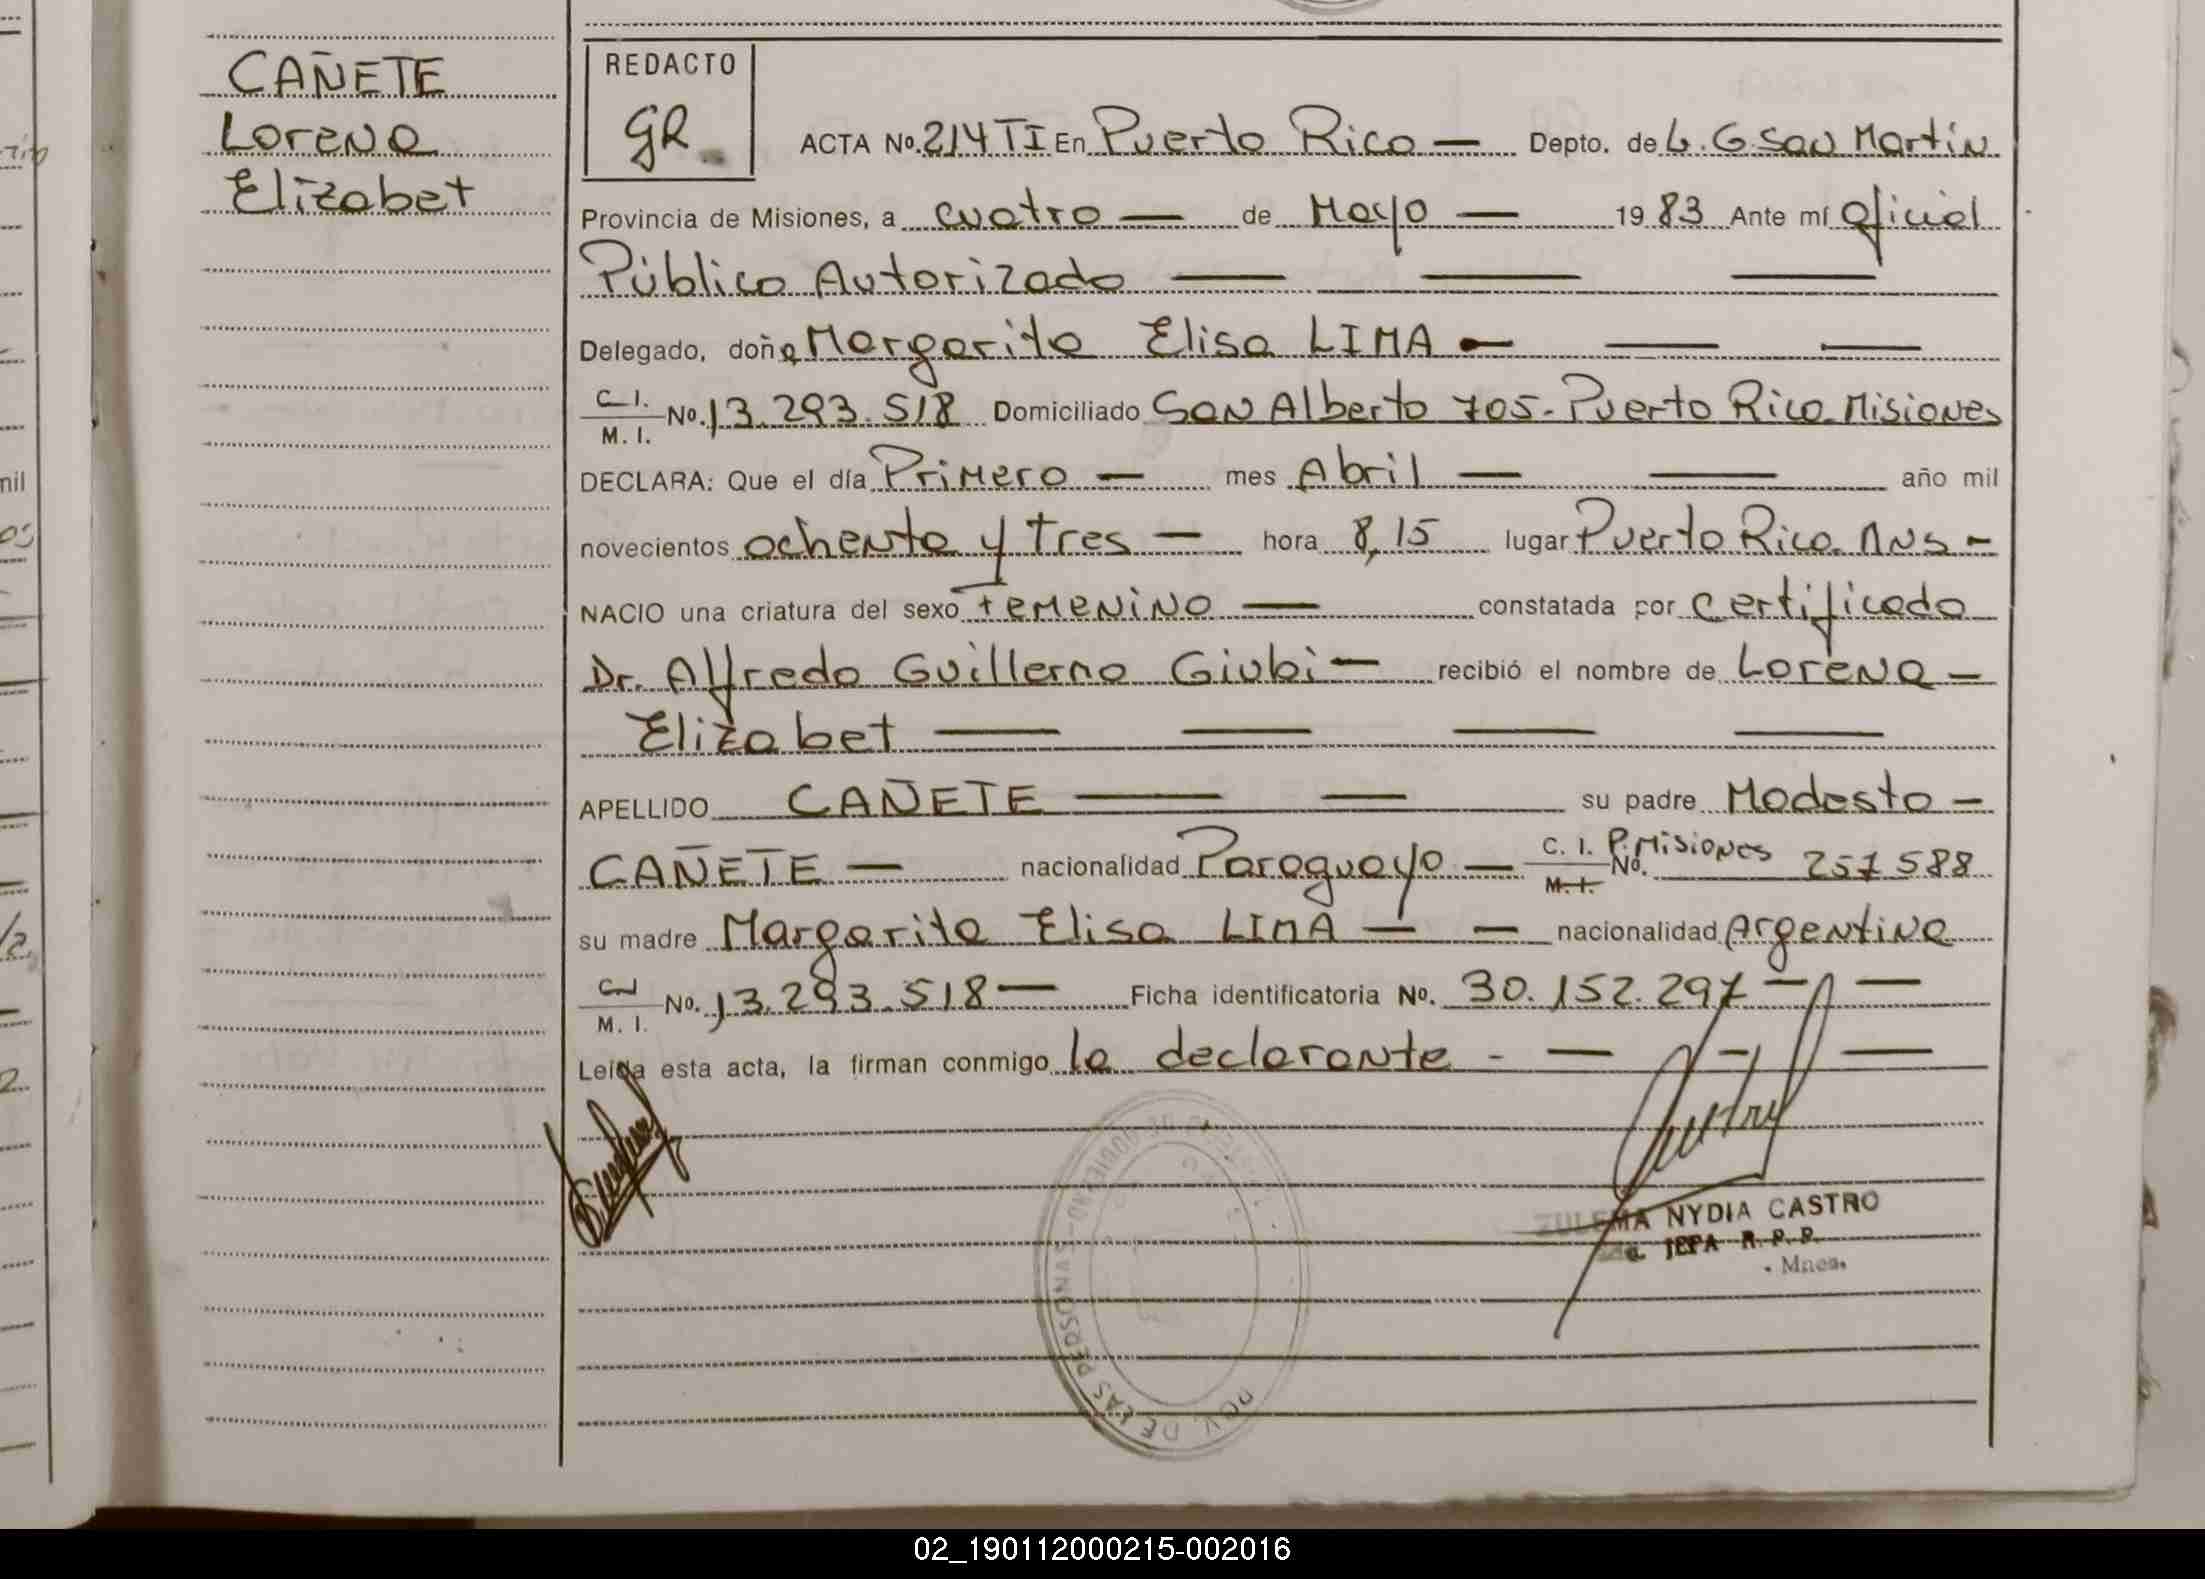 CAÑETE
Lorena
Elizabet
REDACTO
GR
ACTA No. 214 TI En Puerto Rico — Depto. de L. G. San Martín
Provincia de Misiones, a cuatro — de Mayo — 1983 Ante mí Oficial
Público Autorizado — — —
Delegado, doña Margarita Elisa LIMA — — —
C. I. / M. I. No. 13.293.518 Domiciliado San Alberto 705 - Puerto Rico. Misiones
DECLARA: Que el día Primero — mes Abril — — año mil
novecientos ochenta y Tres — hora 8,15 lugar Puerto Rico. Mns -
NACIO una criatura del sexo Femenino — constatada por certificado
Dr. Alfredo Guillermo Giubi — recibió el nombre de Lorena —
Elizabet — — — —
APELLIDO CAÑETE — — su padre Modesto —
CAÑETE — nacionalidad Paraguayo — C. I. / M. I. No. P. Misiones 257588
su madre Margarita Elisa LIMA — — nacionalidad Argentina
C. I. / M. I. No. 13.293.518 — Ficha identificatoria No. 30.152.297 — —
Leída esta acta, la firman conmigo la declarante - — — —
ZULEMA NYDIA CASTRO
JEFA R. P. P.
Mnes.
DE LAS PERSONAS
PROV.
02_190112000215-002016